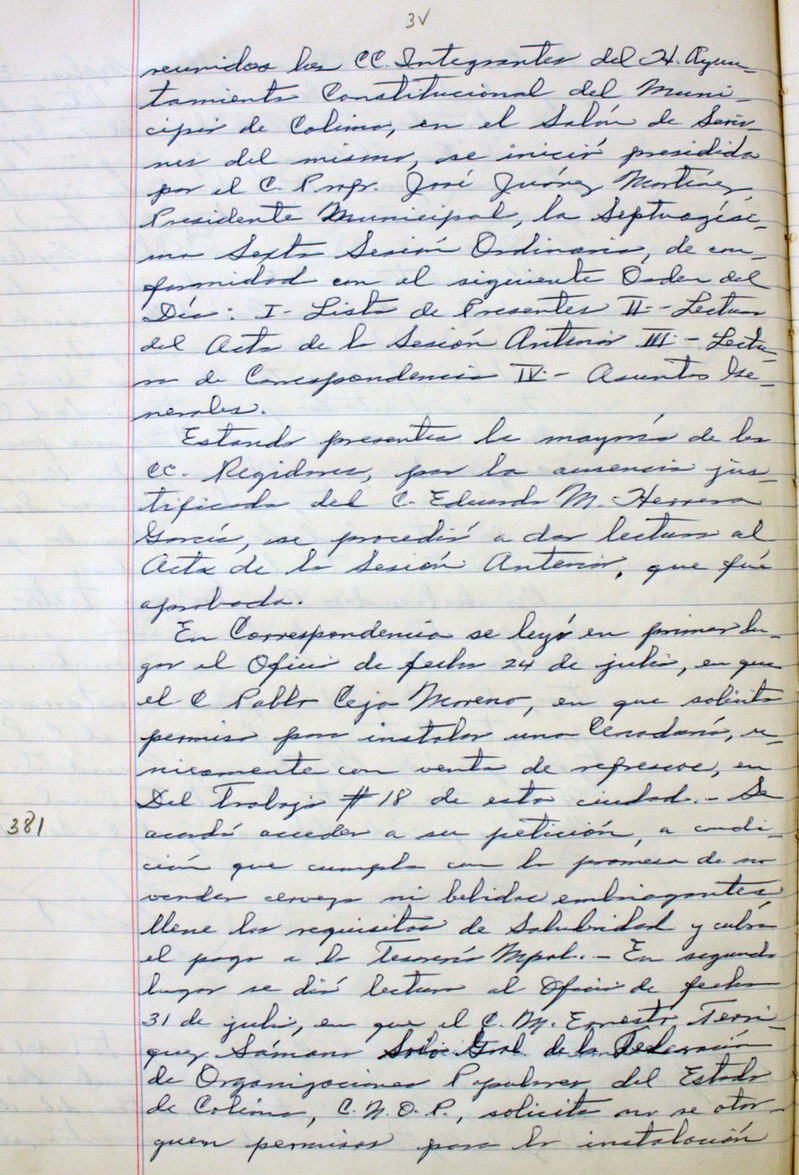 3V
reunidos los CC. Integrantes del H. Ayun-
tamiento Constitucional del Muni-
cipio de Colima, en el Salón de Sesio-
nes del mismo, se inició presidida
por el C. Profr. José Juárez Martínez,
Presidente Municipal, la Septuagési-
ma Sexta Sesión Ordinaria, de con-
formidad con el siguiente Orden del
Día: I- Lista de Presentes II.- Lectura
del Acta de la Sesión Anterior III.- Lectu-
ra de Correspondencia IV.- Asuntos Ge-
nerales.
Estando presentes la mayoría de los
CC. Regidores, por la ausencia jus-
tificada del C. Eduardo M. Herrera
García, se procedió a dar lectura al
Acta de la Sesión Anterior, que fué
aprobada.
En Correspondencia se leyó en primer lu-
gar el Oficio de fecha 24 de julio, en que
el C Pablo Ceja Moreno, en que solicita
permiso para instalar una Cenaduría, ú-
nicamente con venta de refrescos, en
Del Trabajo # 18 de esta ciudad.- Se
381
acordó acceder a su petición, a condi-
ción que cumpla con la promesa de no
vender cerveza ni bebidas embriagantes,
llene los requisitos de Salubridad y cubra
el pago a la Tesorería Mpal.- En segundo
lugar se dió lectura al Oficio de fecha
31 de julio, en que el C. M. Ernesto Terri-
quez Sámano Srio. Gral. de la Federación
de Organizaciones Populares del Estado
de Colima, C.N.O.P., solicita no se otor-
guen permisos para la instalación